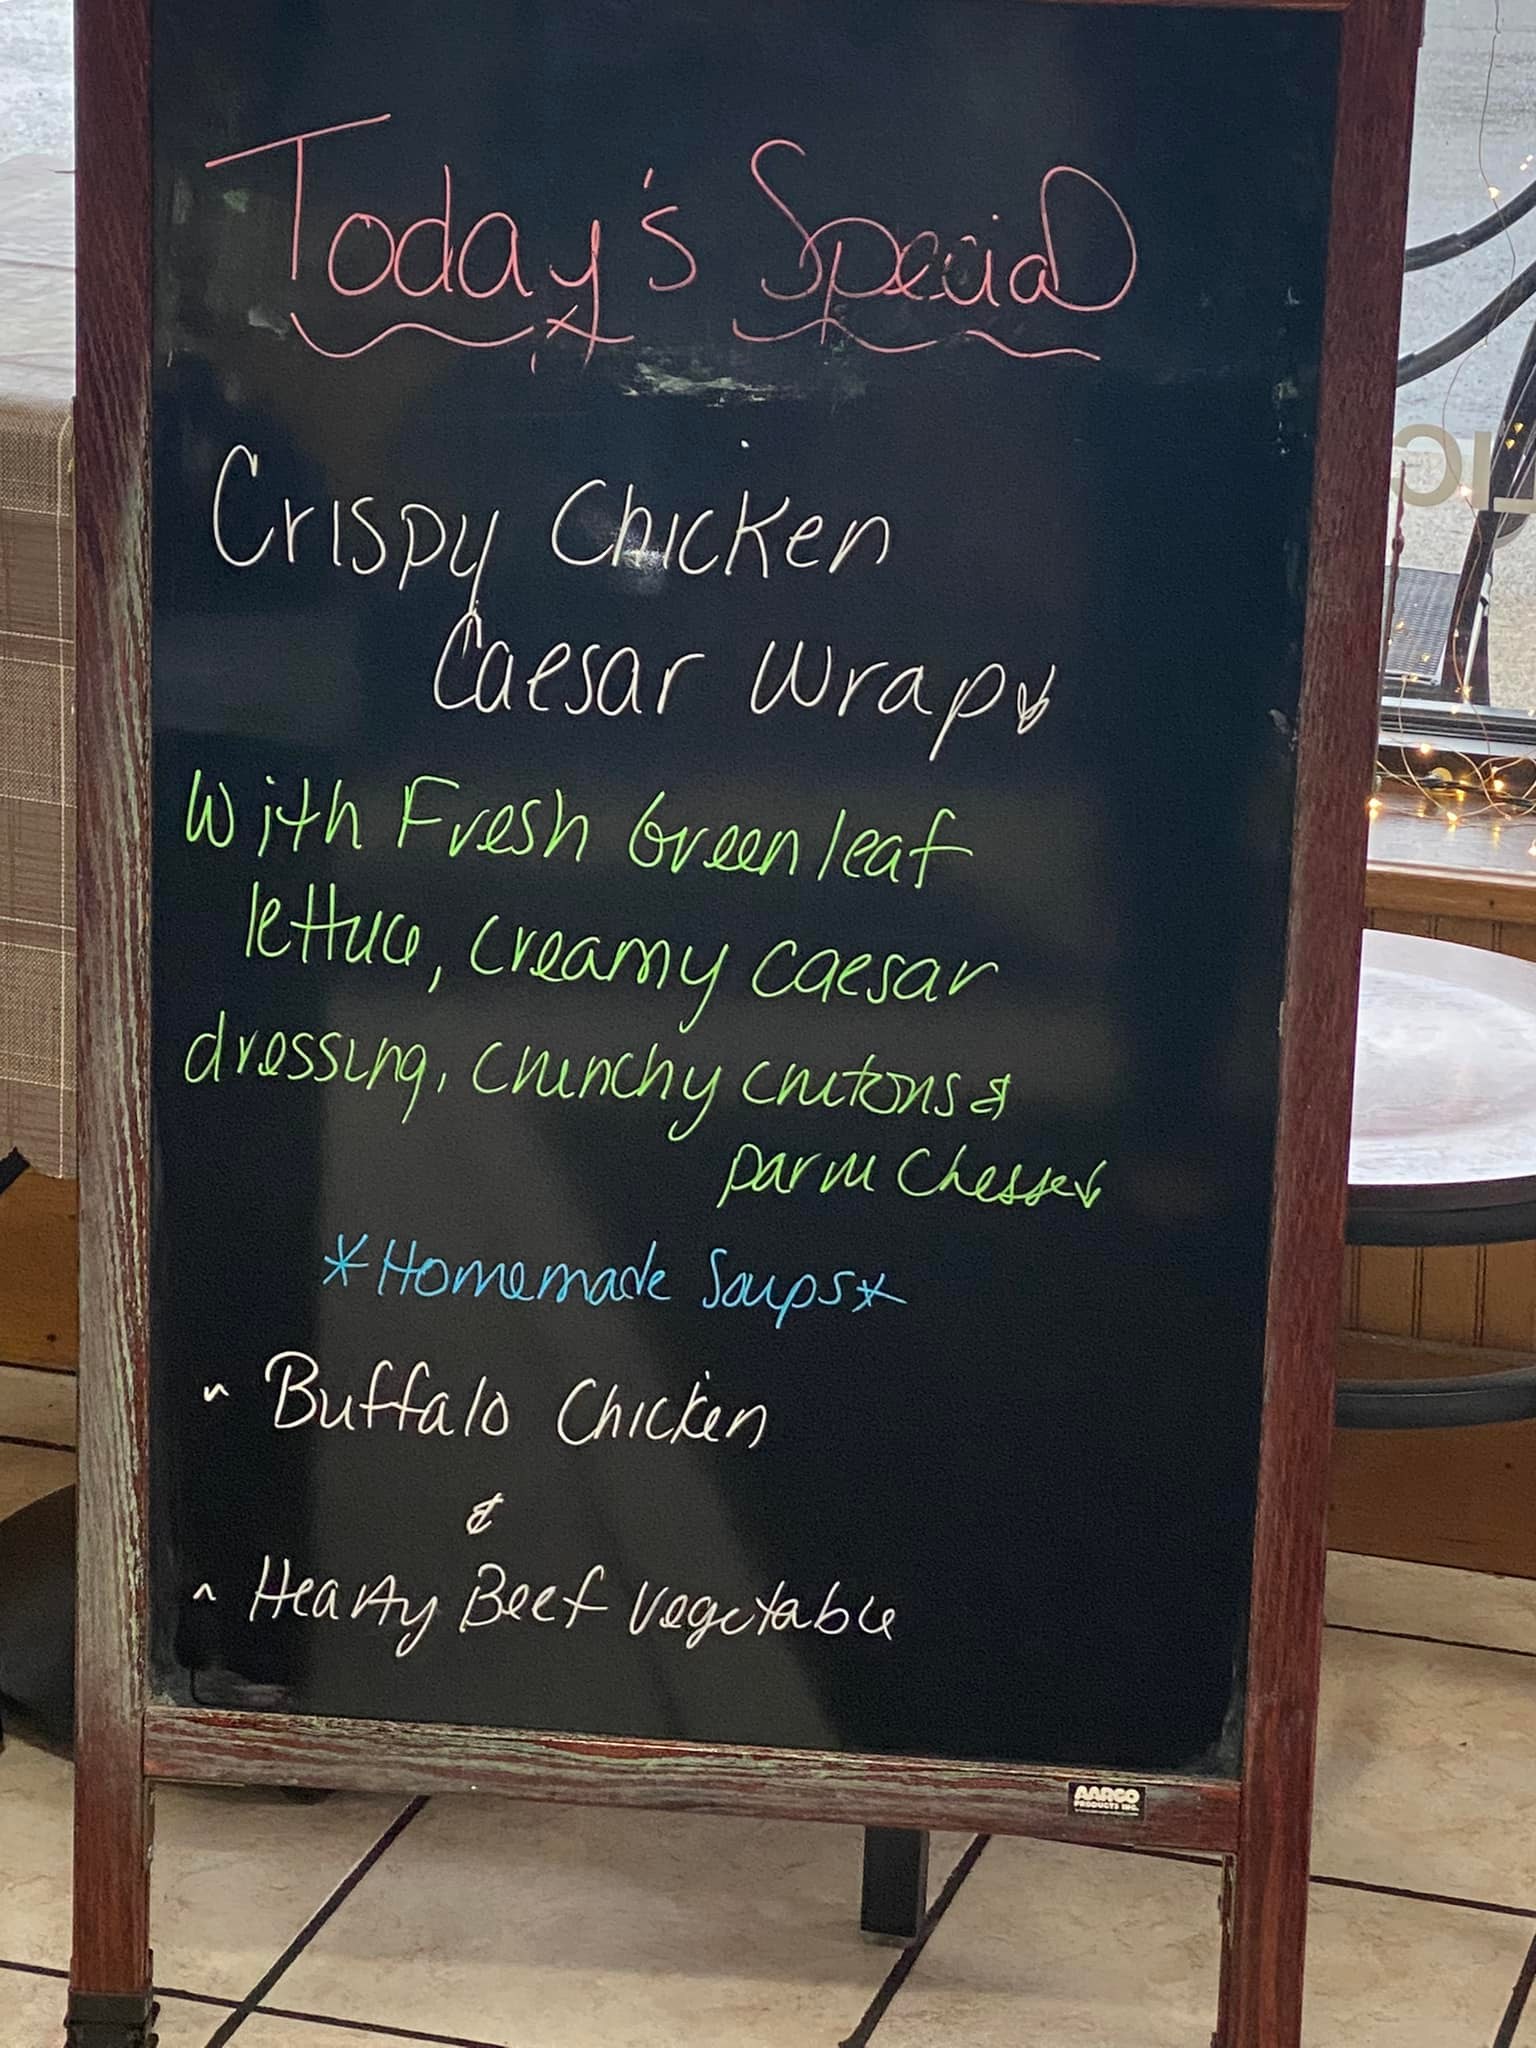 Today's Special
Crispy Chicken
Caesar Wrap
With Fresh Green leaf
lettuce, creamy caesar
dressing, crunchy crutons &
parm Chesse
*Homemade Soups*
~ Buffalo Chicken
&
~ Hearty Beef Vegetable
AARCO
PRODUCTS INC.